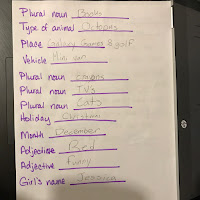 Plural noun Books
Type of animal Octopus
Place Galaxy Games & golf
Vehicle Mini van
Plural noun Lemons
Plural noun TVs
Plural noun Cats
Holiday Christmas
Month December
Adjective Red
Adjective funny
Girl's name